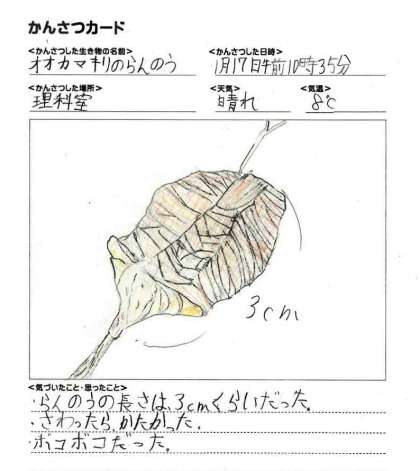 かんさつカード
<かんさつした生き物の名前> <かんさつした日時>
オオカマキリのらんのう 1月17日午前10時35分
<かんさつした場所> <天気> <気温>
理科室 晴れ 8℃
3cm
<気づいたこと・思ったこと>
・らんのうの長さは、3cmくらいだった。
・さわったら、かたかった。
・ボコボコだった。